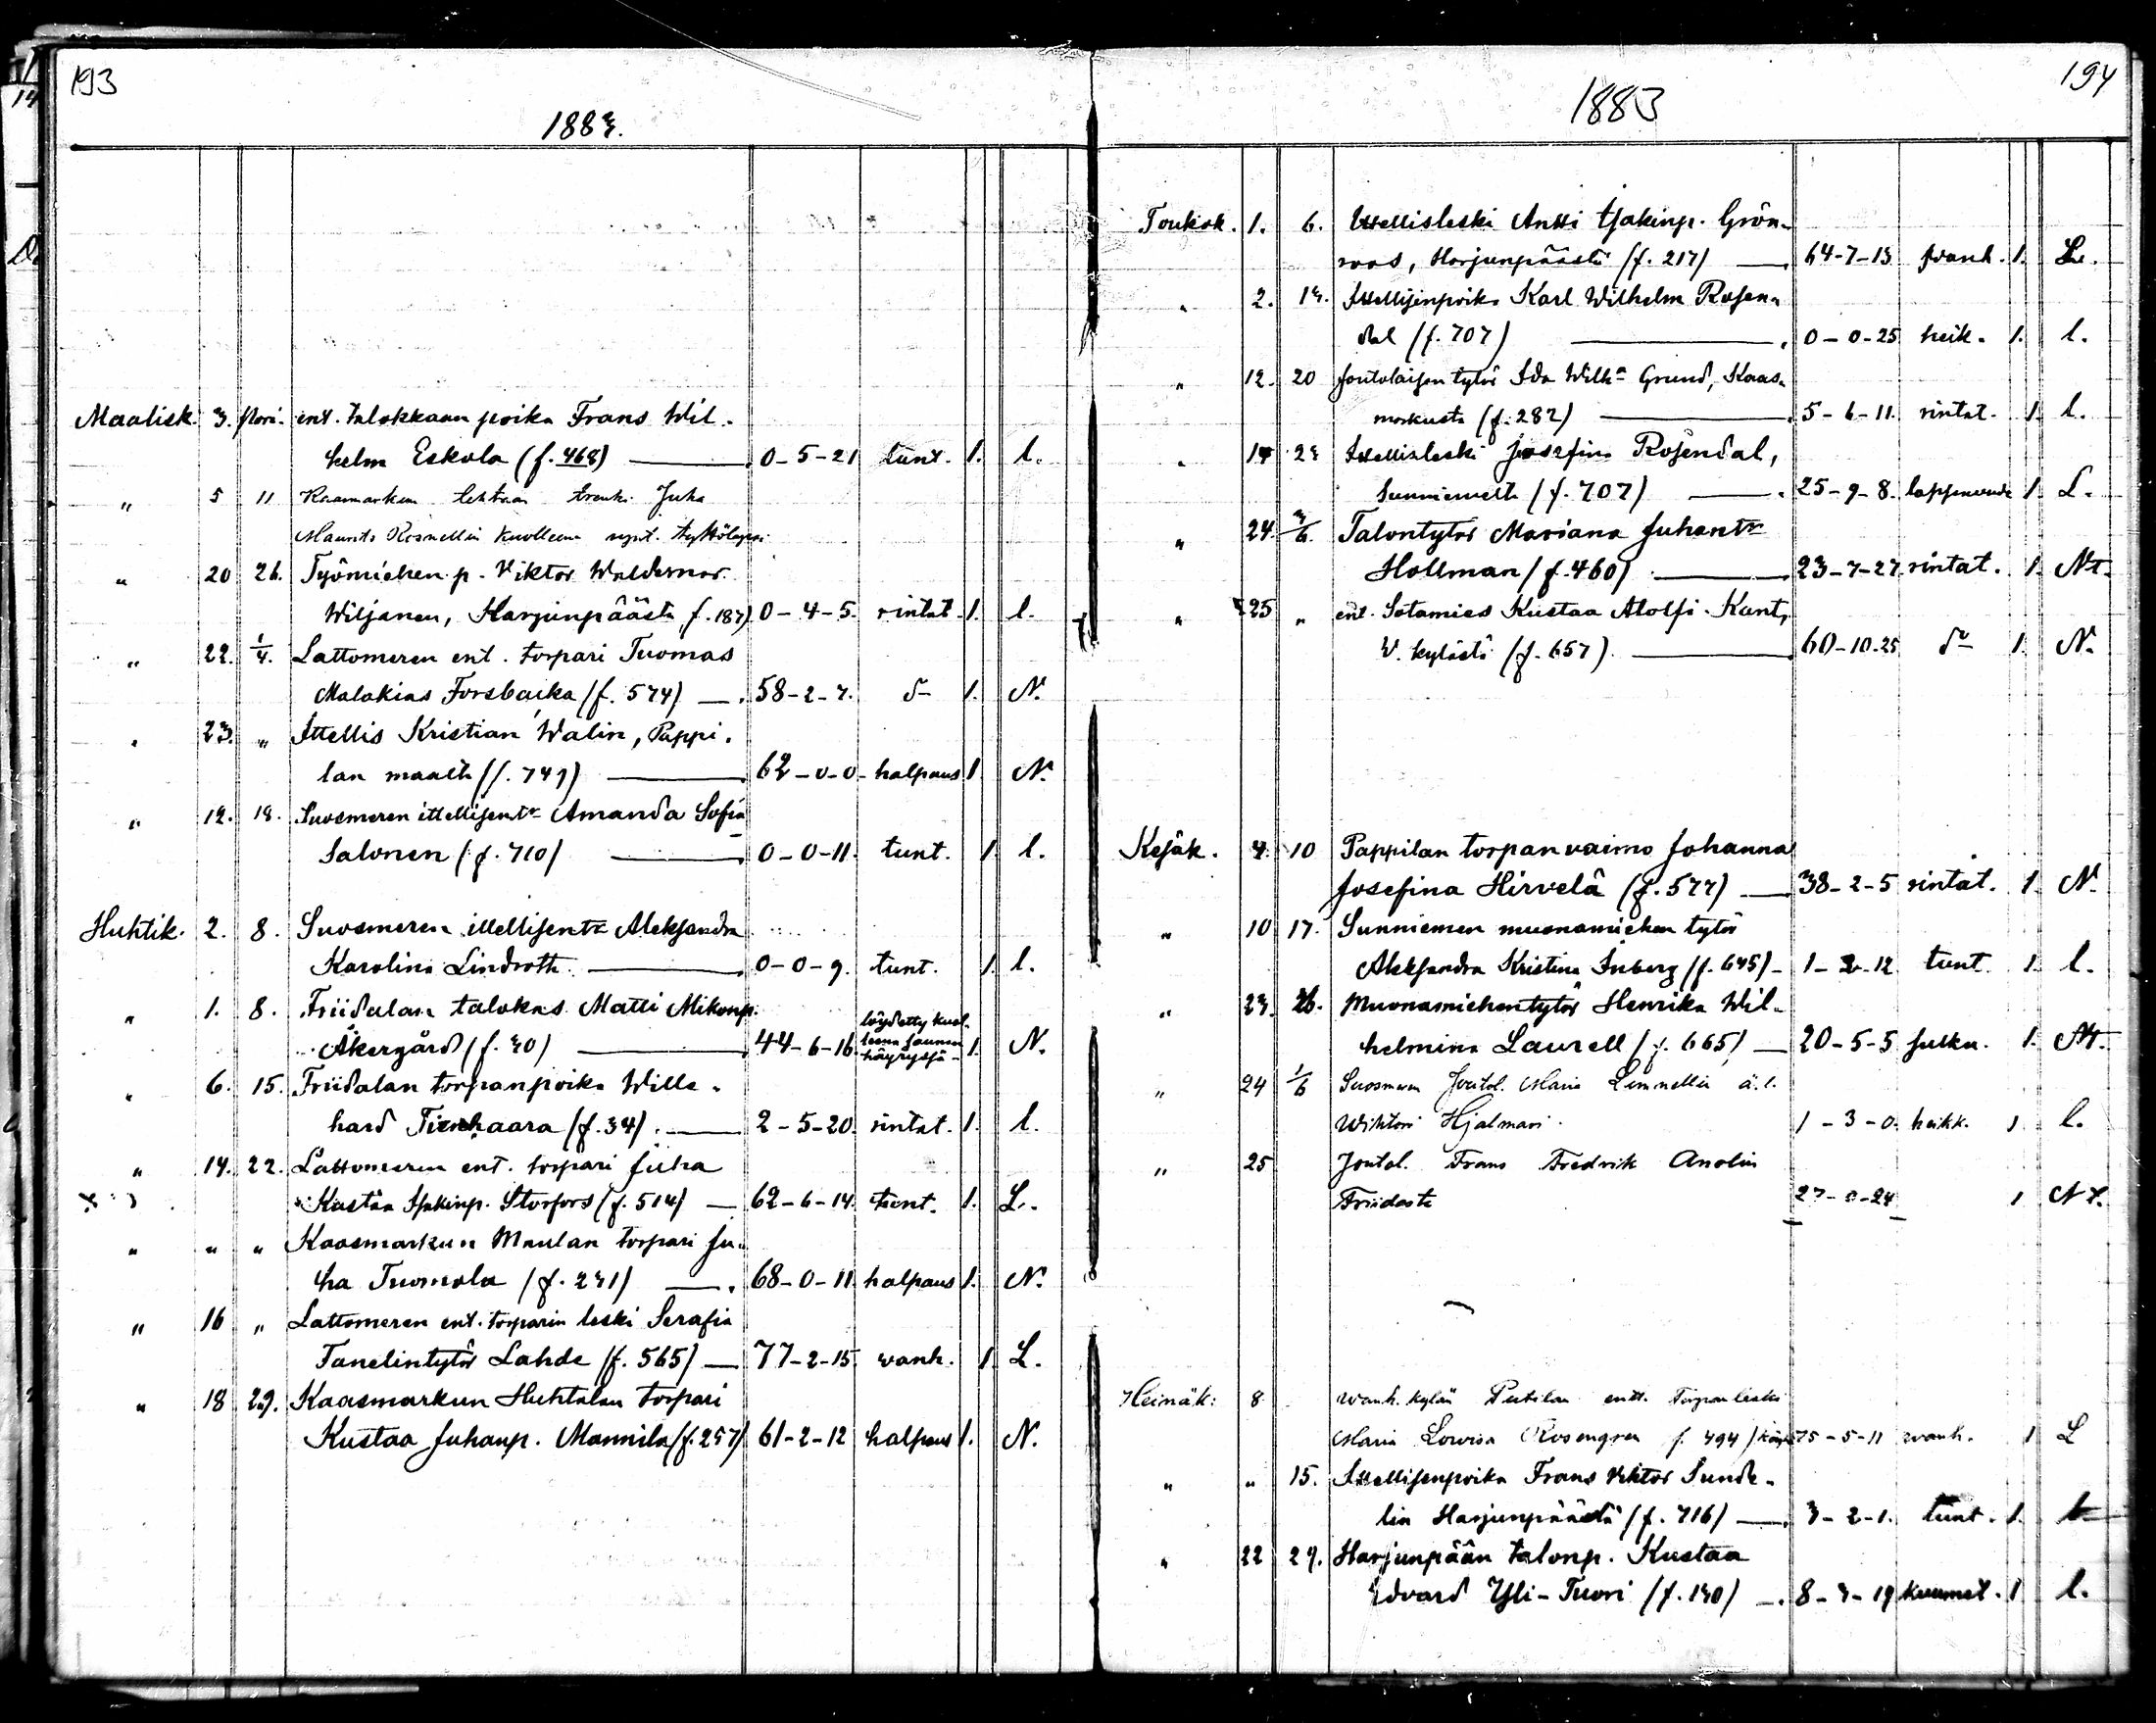 193
1883.
Maalisk. 3. Pori. ent. talokkaan poika Frans Wil-
helm Eskola (f. 468) 0-5-21 tunt. 1. l.
" 5 11 Kaasmarkun tehtaan trenki Juha
Maurits Rosnellin kuolleena synt. tyttölapsi
" 20 26. Työmiehen p. Viktor Waldemar
Wiljanen, Harjunpäästä, f. 187) 0-4-5. rintat. 1. l.
" 22. 1/4. Lattomeren ent. torpari Tuomas
Malakias Forsbacka (f. 574) 58-2-7. do 1. N.
" 23. " Ittellis Kristian Walin, Pappi-
lan maalta (f. 741) 62-0-0 halpaus 1. N.
" 12. 18. Suosmeren ittellisentr Amanda Sofia
Salonen (f. 710) 0-0-11. tunt. 1. l.
Huhtik. 2. 8. Suosmeren ittellisentr Aleksandra
Karolina Lindroth. 0-0-9. tunt. 1. l.
" 1. 8. Friidalan talokas Matti Mikonp.
Åkergård (f. 30) 44-6-16. löydetty kuol-
leena saunan
häyryssä- 1. N.
" 6. 15. Friidalan torpanpoika Wille-
hard Tienhaara (f. 34). 2-5-20. rintat. 1. l.
" 14. 22. Lattomeren ent. torpari Juha
Kustaa Isakinp. Storfors (f. 514) 62-6-14. tunt. 1. L.
" " " Kaasmarkun Maulan torpari Ju-
ha Tuomola (f. 231) 68-0-11. halpaus 1. N.
" 16 " Lattomeren ent. torparin leski Serafia
Tanelintytör Lahde (f. 565) 77-2-15 wanh. 1 L.
" 18 29. Kaasmarkun Huhtalan torpari
Kustaa Juhanp. Mannila (f. 257) 61-2-12 halpaus 1. N.
194
1883
Toukok. 1. 6. Ittellisleski Antti Isakinp. Grön-
roos, Harjunpäästä (f. 217) 64-7-13 wanh. 1. L.
" 2. 13. Ittellisenpoika Karl Wilhelm Rosen-
dal (f. 707) 0-0-25 heik. 1. l.
" 12. 20 Joutolaisen tytör Ida Wilh. Grund, Kaas-
markusta (f. 282) 5-6-11. rintat. 1. l.
" 14 23 Ittellisleski Josefina Rosendal,
Sunniemeltä (f. 707) 25-9-8. lapsenvuode 1. L.
" 24. 3/6. Talontytör Mariana Juhantr
Hollman (f. 460) 23-7-27. rintat. 1. Nt.
" 25 " ent. Sotamies Kustaa Atolfi Kant,
V. kylästä (f. 657) 60-10-25 do 1. N.
Kesäk. 4. 10 Pappilan torpan vaimo Johanna
Josefina Hirvelä (f. 577) 38-2-5 rintat. 1. N.
" 10 17. Sunniemen muonamiehen tytör
Aleksandra Kristina Inberg (f. 645) 1-2-12 tunt. 1. l.
" 23. 26. Muonamiehentytör Henrika Wil-
helmina Laurell (f. 665) 20-5-5 Julku. 1. Nt.
" 24 1/6 Suosmeren Joutol. Maria Linnellin ä. l.
Wihtori Hjalmari. 1-3-0. heikk. 1 l.
" 25 Joutol. Frans Fredrik Anolin
Friidasta 27-0-24 1 Nt.
Heinäk: 8 Wanh. kylän Putilan entt. Torpan leski
Maria Lowisa Rosengren f. 494) 75-5-11 wanh. 1 L
" " 15. Ittellisenpoika Frans Viktor Sunde-
lin Harjunpäästä (f. 716) 3-2-1. tunt. 1. l.
" 22 29. Harjunpään talonp. Kustaa
Edvard Yli-Tuori (f. 130) 8-3-19 kuumet. 1 l.